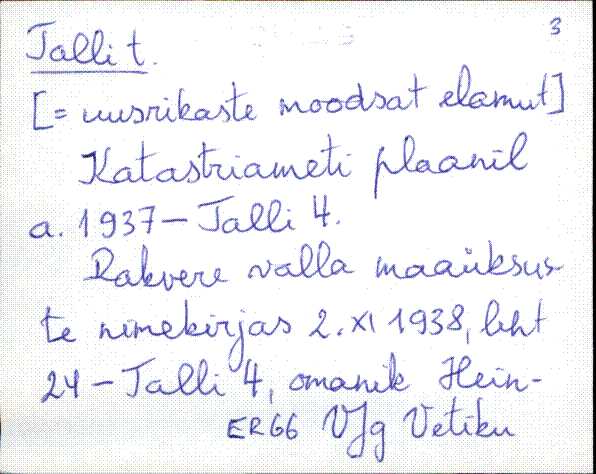 3
Talli t.
[= uusrikaste moodsat elamut]
Katastriameti plaanil
a. 1937 - Talli 4.
Rakvere valla maaüksus-
te nimekirjas 2. XI 1938, leht
24 - Talli 4, omanik Hein-
ER66 VJg Vetiku